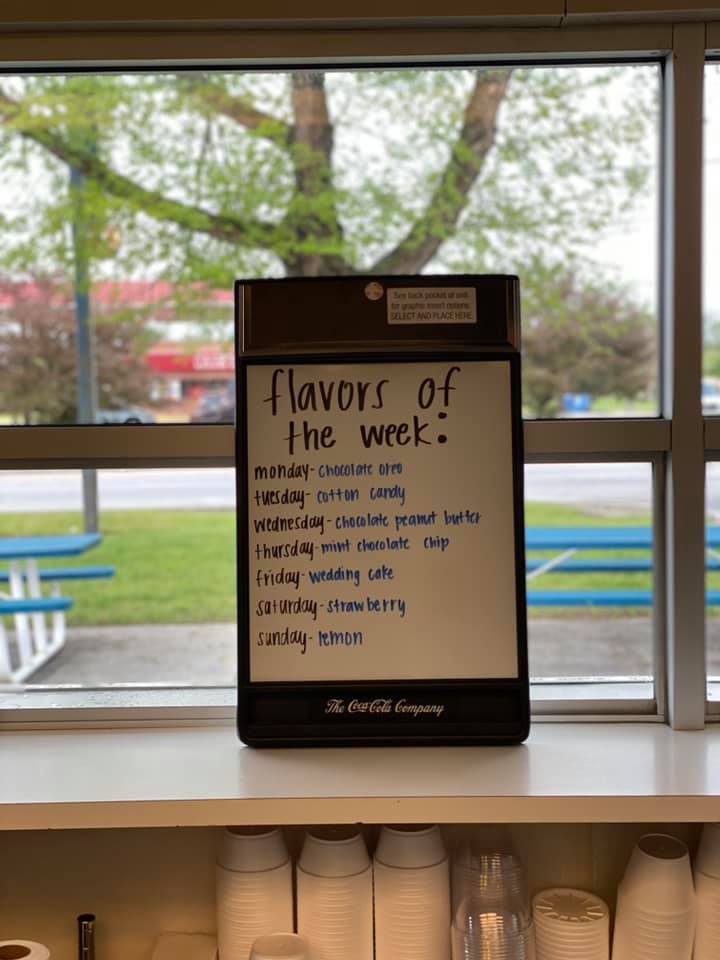 See back pocket of unit
for graphic insert options.
SELECT AND PLACE HERE.
flavors of
the week:
monday- chocolate oreo
tuesday- cotton candy
wednesday- chocolate peanut butter
thursday- mint chocolate chip
friday- wedding cake
saturday- strawberry
sunday- lemon
The Coca-Cola Company